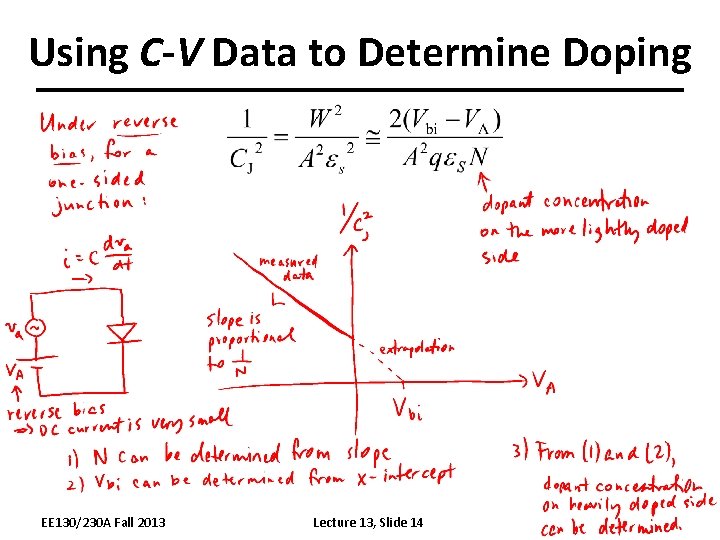 Using C-V Data to Determine Doping
Under reverse
bias, for a
one-sided
junction:
1/C_J^2 = W^2/(A^2 ε_s^2) ≅ 2(V_bi − V_A)/(A^2 q ε_S N)
dopant concentration
on the more lightly doped
side
i = C dv_a/dt
v_a
V_A
reverse bias
⇒ DC current is very small
1/C_J^2
measured
data
slope is
proportional
to 1/N
extrapolation
V_A
V_bi
1) N can be determined from slope
2) V_bi can be determined from x-intercept
3) From (1) and (2),
dopant concentration
on heavily doped side
can be determined.
EE130/230A Fall 2013
Lecture 13, Slide 14